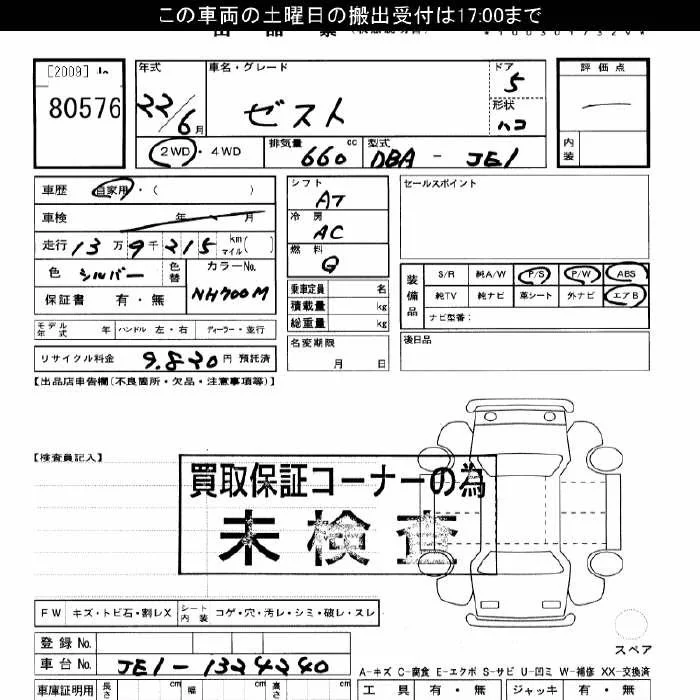 この車両の土曜日の搬出受付は17:00まで
[2009]
80576
年式
22/6月
車名・グレード
ゼスト
ドア
5
形状
ハコ
評価点
―
内装
2WD・4WD
排気量 660 cc
型式 DBA - JE1
車歴 自家用・( )
車検 年 月
走行 13万9千215 km マイル ( )
色 シルバー 色替
カラーNo. NH700M
保証書 有・無
モデル年式 年 ハンドル 左・右 ディーラー・並行
リサイクル料金 9.820円 預託済
シフト
AT
冷房
AC
燃料
G
乗車定員 名
積載量 kg
総重量 kg
名変期限
月 日
セールスポイント
装備品
S/R 純A/W P/S P/W ABS
純TV 純ナビ 革シート 外ナビ エアB
ナビ型番:
後日品
【出品店申告欄(不良箇所・欠品・注意事項等)】
【検査員記入】
買取保証コーナーの為
未検査
FW キズ・トビ石・割レX シート内装 コゲ・穴・汚レ・シミ・破レ・スレ
スペア
登録No.
車台No. JE1-1324240
A-キズ C-腐食 E-エクボ S-サビ U-凹ミ W-補修 XX-交換済
車庫証明用 長さ cm 幅 cm 高さ cm
工具 有・無 ジャッキ 有・無